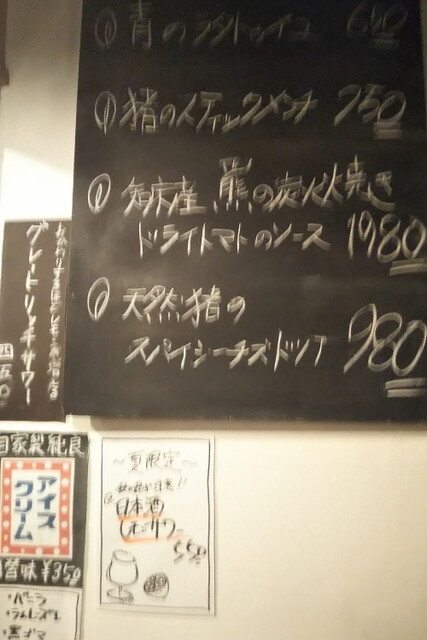 青のラタトゥイユ 640
猪のスティックメンチ 750
知床産 熊の炭火焼き
ドライトマトのソース 1980
天然猪の
スパイシーチーズドッグ 980
グレートリッチサワー
四五〇
自家製純良
アイス
クリーム
¥350
・バニラ
・ラムレーズン
・黒ゴマ
~夏限定~
日本酒
サワー
550